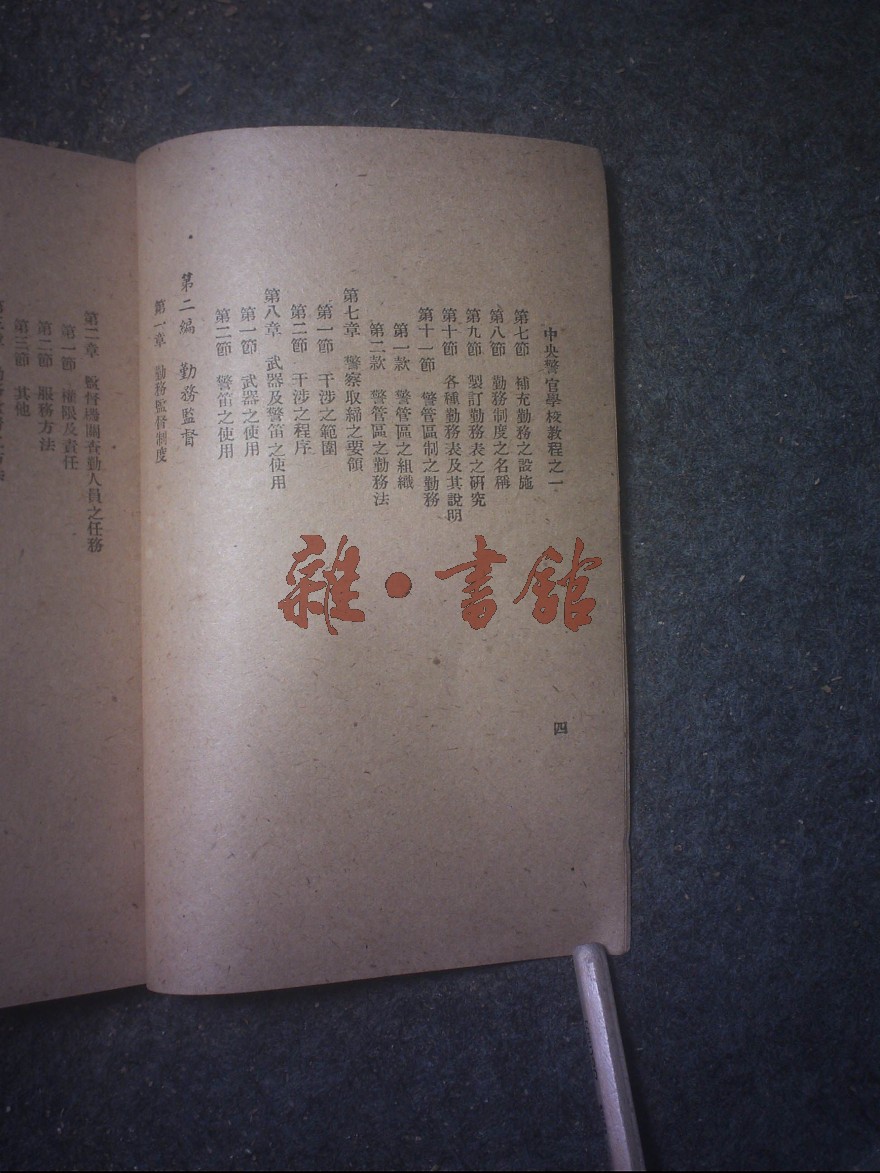 中央警官學校教程之一
第七節 補充勤務之設施
第八節 勤務制度之名稱
第九節 製訂勤務表之研究
第十節 各種勤務表及其說明
第十一節 警管區制之勤務
第一款 警管區之組織
第二款 警管區之勤務法
第七章 警察取締之要領
第一節 干涉之範圍
第二節 干涉之程序
第八章 武器及警笛之使用
第一節 武器之使用
第二節 警笛之使用
第二編 勤務監督
第一章 勤務監督制度
四
第二章 監督機關查勤人員之任務
第一節 權限及責任
第二節 服務方法
第三節 其他
雜·書館